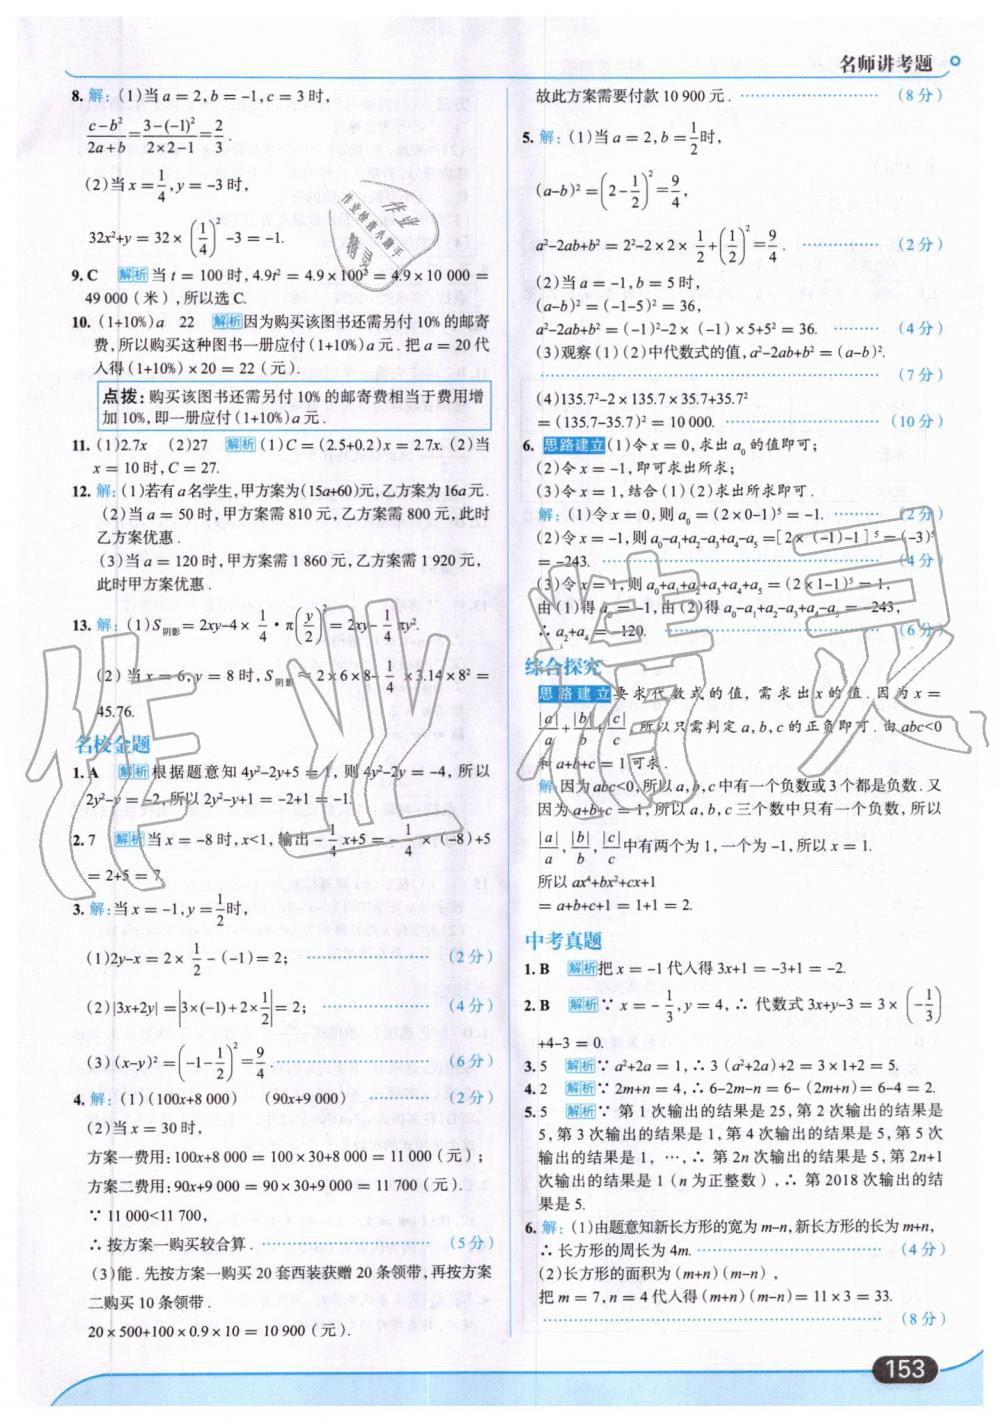 名师讲考题
8. 解：(1)当 a = 2, b = -1, c = 3 时,
(c-b²)/(2a+b) = (3-(-1)²)/(2×2-1) = 2/3.
(2)当 x = 1/4, y = -3 时,
32x²+y = 32 × (1/4)² -3 = -1.
9. C 解析 当 t = 100 时, 4.9t² = 4.9 × 100² = 4.9 × 10 000 =
49 000 (米), 所以选 C.
10. (1+10%)a 22 解析 因为购买该图书还需另付 10% 的邮寄
费, 所以购买这种图书一册应付 (1+10%)a 元. 把 a = 20 代
入得 (1+10%) × 20 = 22 (元).
点拨：购买该图书还需另付 10% 的邮寄费相当于费用增
加 10%, 即一册应付 (1+10%)a 元.
11. (1)2.7x (2)27 解析 (1)C = (2.5+0.2)x = 2.7x. (2)当
x = 10 时, C = 27.
12. 解：(1)若有 a 名学生, 甲方案为(15a+60)元, 乙方案为16a元.
(2)当 a = 50 时, 甲方案需 810 元, 乙方案需 800 元, 此时
乙方案优惠.
(3)当 a = 120 时, 甲方案需 1 860 元, 乙方案需 1 920 元,
此时甲方案优惠.
13. 解：(1)S阴影 = 2xy-4 × 1/4 · π(y/2)² = 2xy- 1/4 πy².
(2) 当 x = 6, y = 8 时, S阴影 ≈ 2 × 6 × 8- 1/4 × 3.14 × 8² =
45.76.
名校金题
1. A 解析 根据题意知 4y²-2y+5 = 1, 则 4y²-2y = -4, 所以
2y²-y = -2, 所以 2y²-y+1 = -2+1 = -1.
2. 7 解析 当 x = -8 时, x<1, 输出 - 1/4 x+5 = - 1/4 × (-8)+5
= 2+5 = 7.
3. 解：当 x = -1, y = 1/2 时,
(1)2y-x = 2 × 1/2 - (-1) = 2; (2 分)
(2)|3x+2y| = |3×(-1)+2×1/2| = 2; (4 分)
(3)(x-y)² = (-1-1/2)² = 9/4. (6 分)
4. 解：(1)(100x+8 000) (90x+9 000) (2 分)
(2)当 x = 30 时,
方案一费用: 100x+8 000 = 100 × 30+8 000 = 11 000 (元);
方案二费用: 90x+9 000 = 90 × 30+9 000 = 11 700 (元).
∵ 11 000<11 700,
∴ 按方案一购买较合算. (5 分)
(3)能. 先按方案一购买 20 套西装获赠 20 条领带, 再按方案
二购买 10 条领带.
20 × 500+100 × 0.9 × 10 = 10 900 (元).
故此方案需要付款 10 900 元. (8 分)
5. 解：(1)当 a = 2, b = 1/2 时,
(a-b)² = (2-1/2)² = 9/4,
a²-2ab+b² = 2²-2 × 2 × 1/2 + (1/2)² = 9/4. (2 分)
(2)当 a = -1, b = 5 时,
(a-b)² = (-1-5)² = 36,
a²-2ab+b² = (-1)²-2 × (-1) × 5+5² = 36. (4 分)
(3)观察(1)(2)中代数式的值, a²-2ab+b² = (a-b)².
(7 分)
(4)135.7²-2 × 135.7 × 35.7+35.7²
= (135.7-35.7)² = 10 000. (10 分)
6. 思路建立 (1)令 x = 0, 求出 a₀ 的值即可;
(2)令 x = -1, 即可求出所求;
(3)令 x = 1, 结合(1)(2)求出所求即可.
解：(1)令 x = 0, 则 a₀ = (2 × 0-1)⁵ = -1. (2 分)
(2)令 x = -1, 则 a₀-a₁+a₂-a₃+a₄-a₅ = [2 × (-1)-1]⁵ = (-3)⁵
= -243. (4 分)
(3)令 x = 1, 则 a₀+a₁+a₂+a₃+a₄+a₅ = (2×1-1)⁵ = 1,
由(1)得 a₀ = -1, 由(2)得 a₀-a₁+a₂-a₃+a₄-a₅ = -243,
∴ a₂+a₄ = -120. (6 分)
综合探究
思路建立 要求代数式的值, 需求出 x 的值. 因为 x =
|a|/a + |b|/b + |c|/c, 所以只需判定 a, b, c 的正负即可. 由 abc<0
和 a+b+c = 1 可求.
解 因为 abc<0, 所以 a, b, c 中有一个负数或 3 个都是负数. 又
因为 a+b+c = 1, 所以 a, b, c 三个数中只有一个负数, 所以
|a|/a, |b|/b, |c|/c 中有两个为 1, 一个为 -1, 所以 x = 1.
所以 ax⁴+bx²+cx+1
= a+b+c+1 = 1+1 = 2.
中考真题
1. B 解析 把 x = -1 代入得 3x+1 = -3+1 = -2.
2. B 解析 ∵ x = - 1/3, y = 4, ∴ 代数式 3x+y-3 = 3 × (-1/3)
+4-3 = 0.
3. 5 解析 ∵ a²+2a = 1, ∴ 3 (a²+2a) +2 = 3 × 1+2 = 5.
4. 2 解析 ∵ 2m+n = 4, ∴ 6-2m-n = 6- (2m+n) = 6-4 = 2.
5. 5 解析 ∵ 第 1 次输出的结果是 25, 第 2 次输出的结果是
5, 第 3 次输出的结果是 1, 第 4 次输出的结果是 5, 第 5 次
输出的结果是 1, …, ∴ 第 2n 次输出的结果是 5, 第 2n+1
次输出的结果是 1 (n 为正整数), ∴ 第 2018 次输出的结
果是 5.
6. 解：(1)由题意知新长方形的宽为 m-n, 新长方形的长为 m+n,
∴ 长方形的周长为 4m. (4 分)
(2)长方形的面积为 (m+n)(m-n),
把 m = 7, n = 4 代入得 (m+n)(m-n) = 11 × 3 = 33.
(8 分)
153
作业精灵
作业
作业检查小助手
精灵